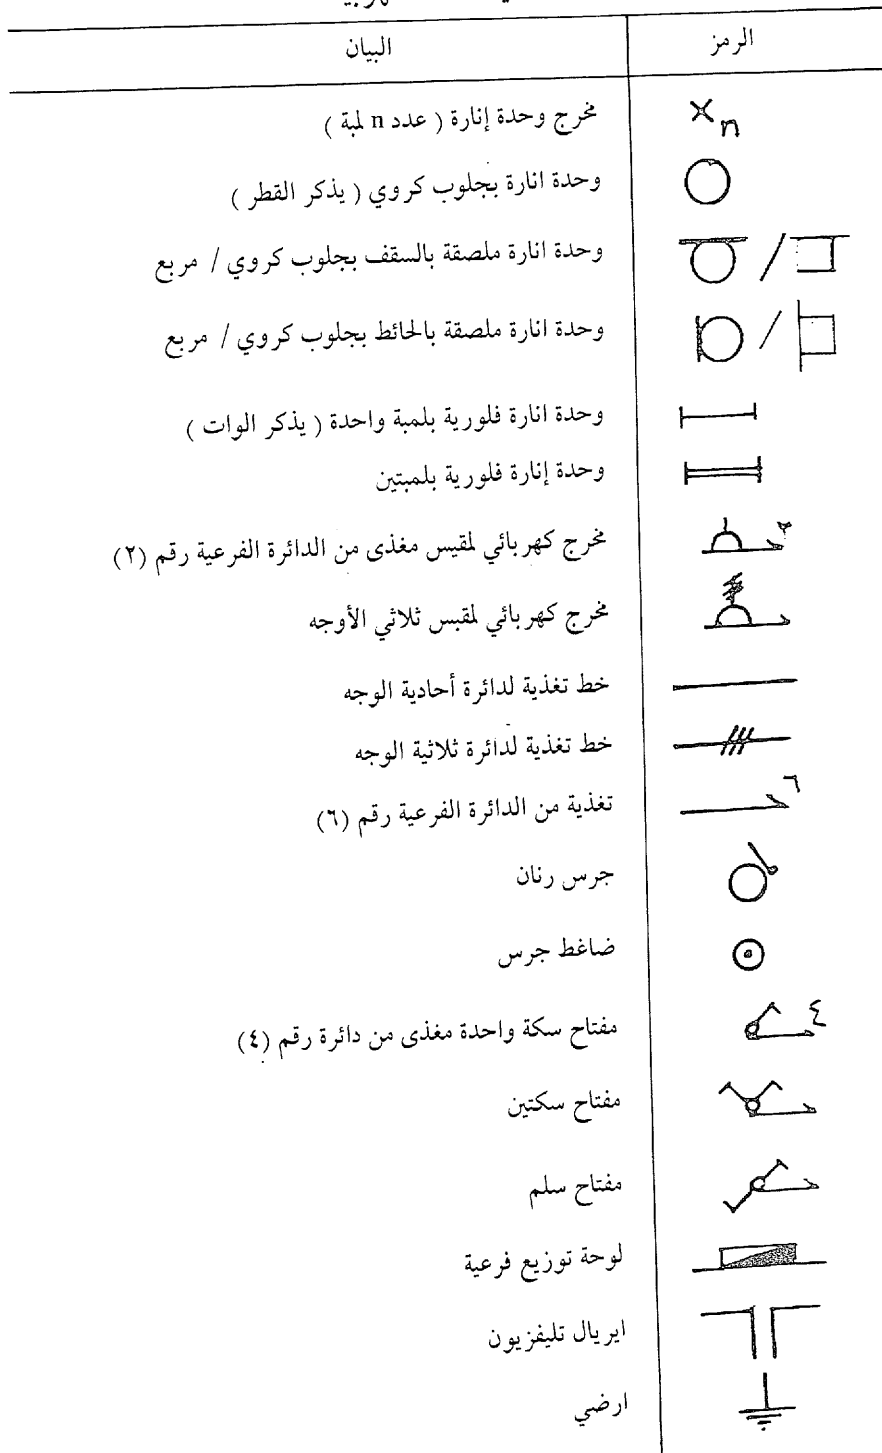 الرمز البيان
×n مخرج وحدة إنارة ( عدد n لمبة )
وحدة انارة بجلوب كروي ( يذكر القطر )
وحدة انارة ملصقة بالسقف بجلوب كروي / مربع
وحدة انارة ملصقة بالحائط بجلوب كروي / مربع
وحدة انارة فلورية بلمبة واحدة ( يذكر الوات )
وحدة إنارة فلورية بلمبتين
٢ مخرج كهربائي لمقيس مغذى من الدائرة الفرعية رقم (٢)
مخرج كهربائي لمقبس ثلاثي الأوجه
خط تغذية لدائرة أحادية الوجه
خط تغذية لدائرة ثلاثية الوجه
٦ تغذية من الدائرة الفرعية رقم (٦)
جرس رنان
ضاغط جرس
٤ مفتاح سكة واحدة مغذى من دائرة رقم (٤)
مفتاح سكتين
مفتاح سلم
لوحة توزيع فرعية
ايريال تليفزيون
ارضي